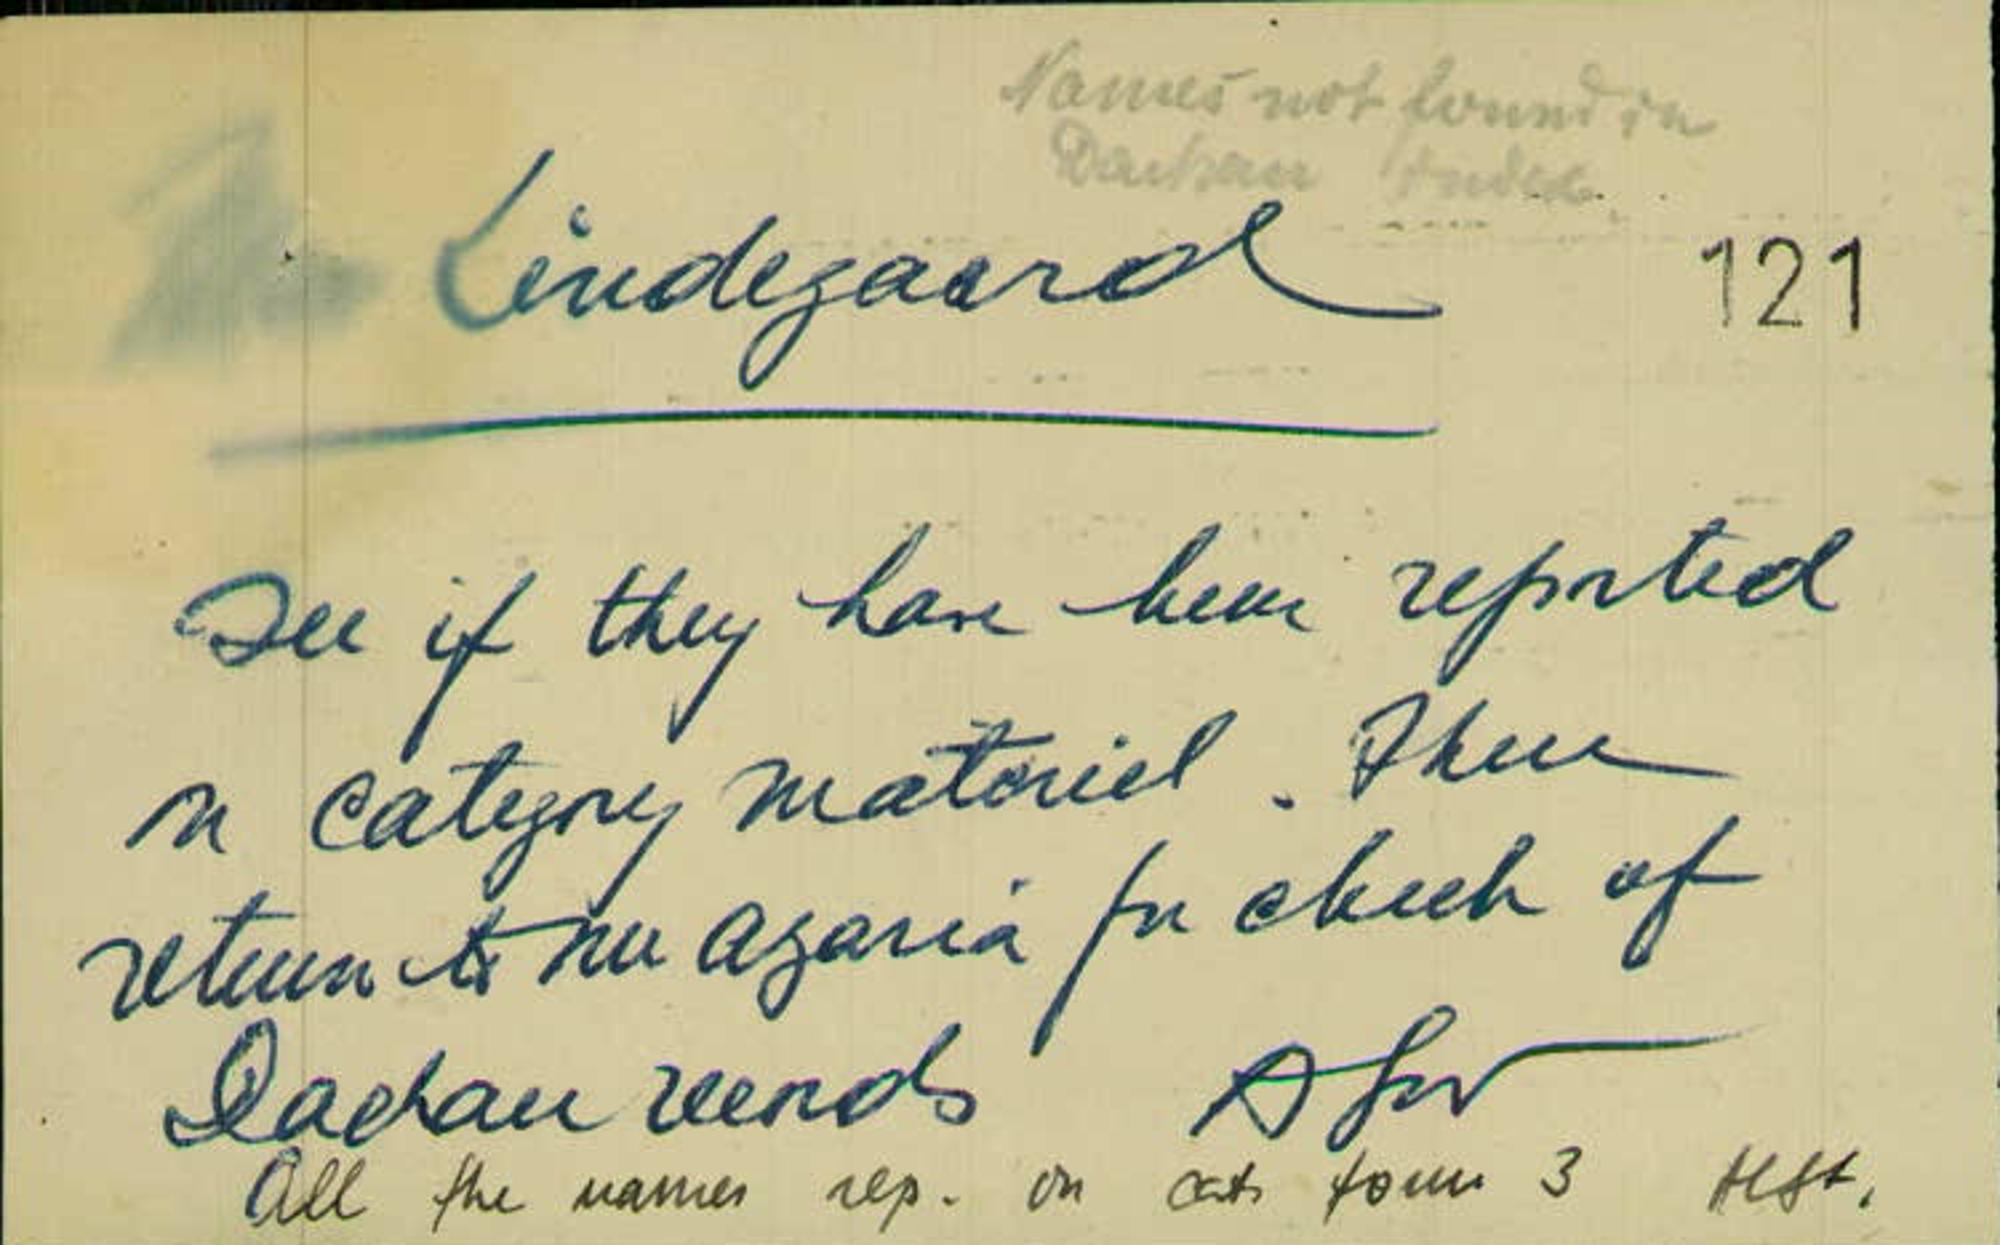 Names not found in
Dachau index.
Lindegaard
121
See if they have been reported
on category material. Then
return to me Azaria for check of
Dachau records
All the names rep. on cat. form 3